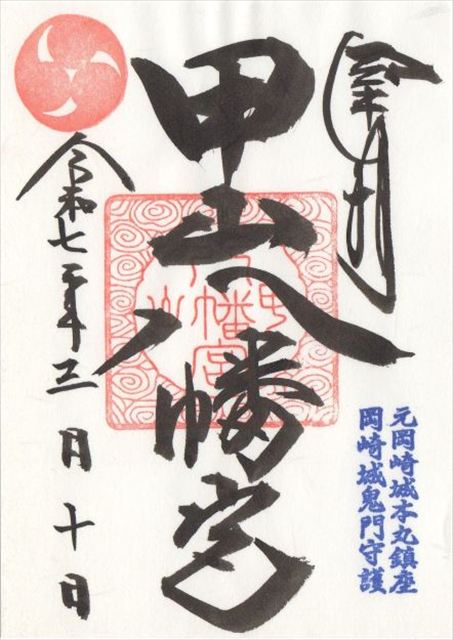 奉拝
甲山八幡宮
元岡崎城本丸鎮座
岡崎城鬼門守護
令和七年三月十日